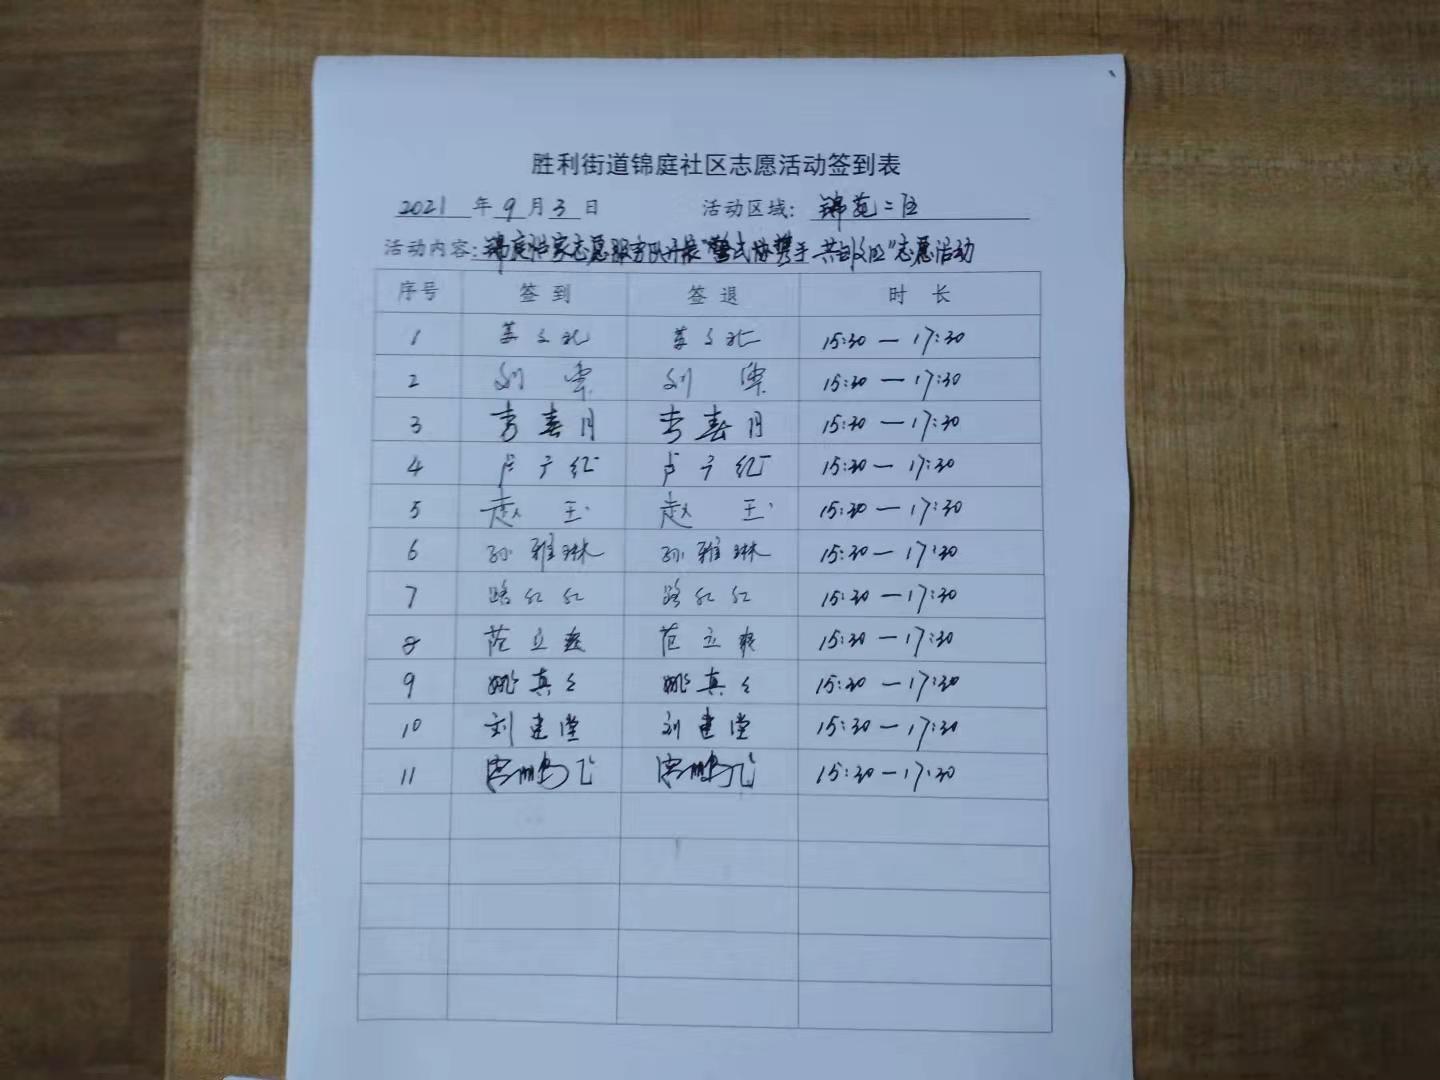 胜利街道锦庭社区志愿活动签到表
2021 年 9 月 3 日 活动区域: 锦苑二区
活动内容: 锦庭 家志愿服务队开展" 携手 共 "志愿活动
序号 签到 签退 时 长
1 姜文礼 姜文礼 15:30—17:30
2 刘 军 刘 军 15:30—17:30
3 李春月 李春月 15:30—17:30
4 卢广红 卢广红 15:30—17:30
5 赵 玉 赵 玉 15:30—17:30
6 孙雅琳 孙雅琳 15:30—17:30
7 路红红 路红红 15:30—17:30
8 范立爽 范立爽 15:30—17:30
9 姚真真 姚真真 15:30—17:30
10 刘建堂 刘建堂 15:30—17:30
11 鹏飞 鹏飞 15:30—17:30